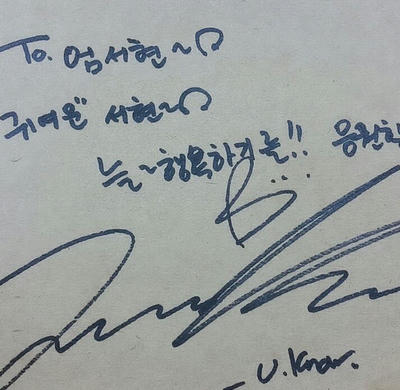 To. 엄서현~♡
귀여운 서현~♡
늘~행복하기를!! 응원할
U.Know.